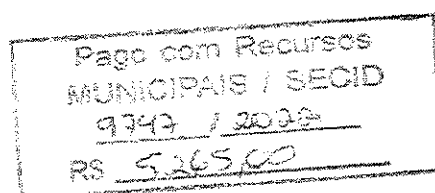 Pago com Recursos
MUNICIPAIS / SECID
9747 /
R$ 5.265,00